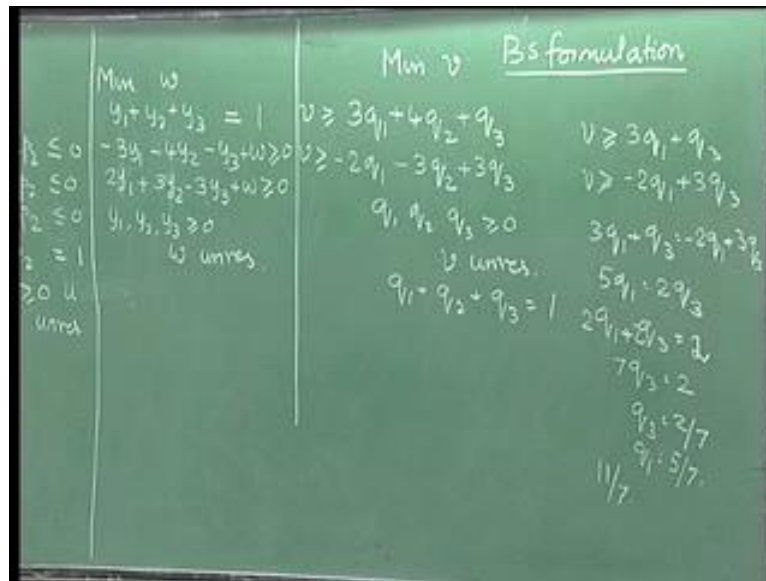 ≤ 0
≤ 0
≤ 0
= 1
≥ 0 u
unres
Min w
y₁ + y₂ + y₃ = 1
-3y₁ - 4y₂ - y₃ + w ≥ 0
2y₁ + 3y₂ - 3y₃ + w ≥ 0
y₁, y₂, y₃ ≥ 0
w unres.
Min v
v ≥ 3q₁ + 4q₂ + q₃
v ≥ -2q₁ - 3q₂ + 3q₃
q₁ q₂ q₃ ≥ 0
v unres.
q₁ + q₂ + q₃ = 1
B's formulation
v ≥ 3q₁ + q₃
v ≥ -2q₁ + 3q₃
3q₁ + q₃ = -2q₁ + 3q₃
5q₁ = 2q₃
2q₁ + 2q₃ = 2
7q₃ = 2
q₃ = 2/7
q₁ = 5/7.
11/7